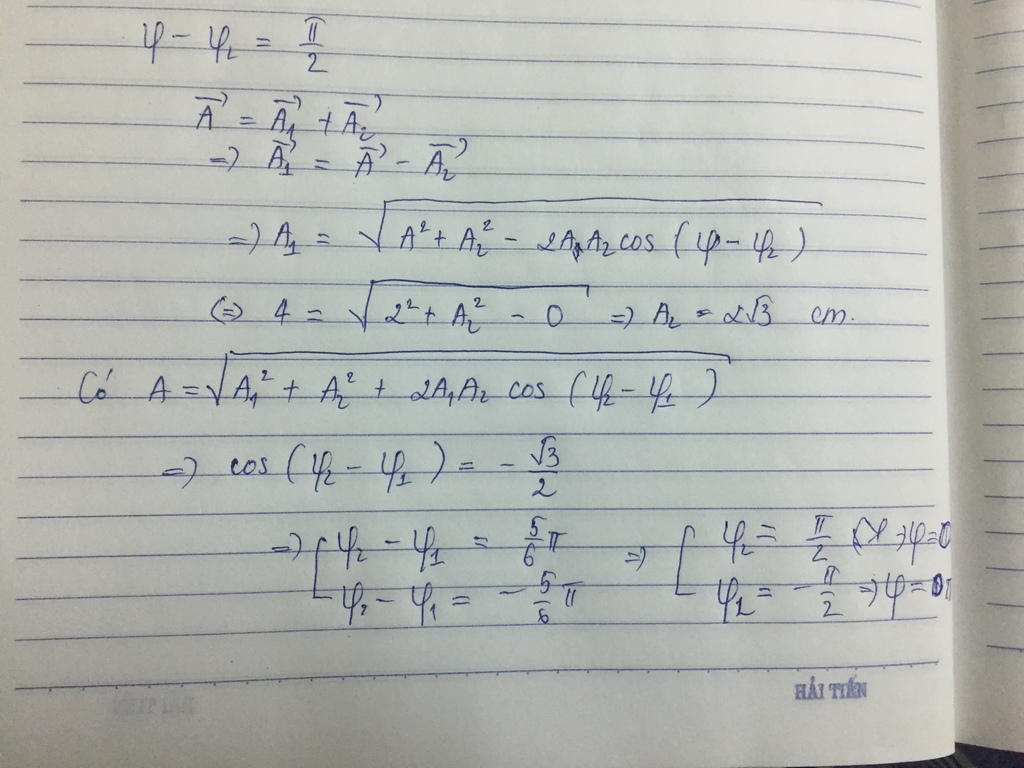 φ - φ₂ = π/2
A⃗ = A⃗₁ + A⃗₂
=) A⃗₁ = A⃗ - A⃗₂
=) A₁ = √(A² + A₂² - 2A₁A₂cos(φ - φ₂))
(=) 4 = √(2² + A₂² - 0) =) A₂ = 2√3 cm.
Có A = √(A₁² + A₂² + 2A₁A₂ cos(φ₂ - φ₁))
=) cos(φ₂ - φ₁) = -√3/2
=) [ φ₂ - φ₁ = 5/6 π =) [ φ₂ = π/2 =) φ = 0
φ₂ - φ₁ = -5/6 π φ₂ = -π/2 =) φ = 0
HẢI TIẾN